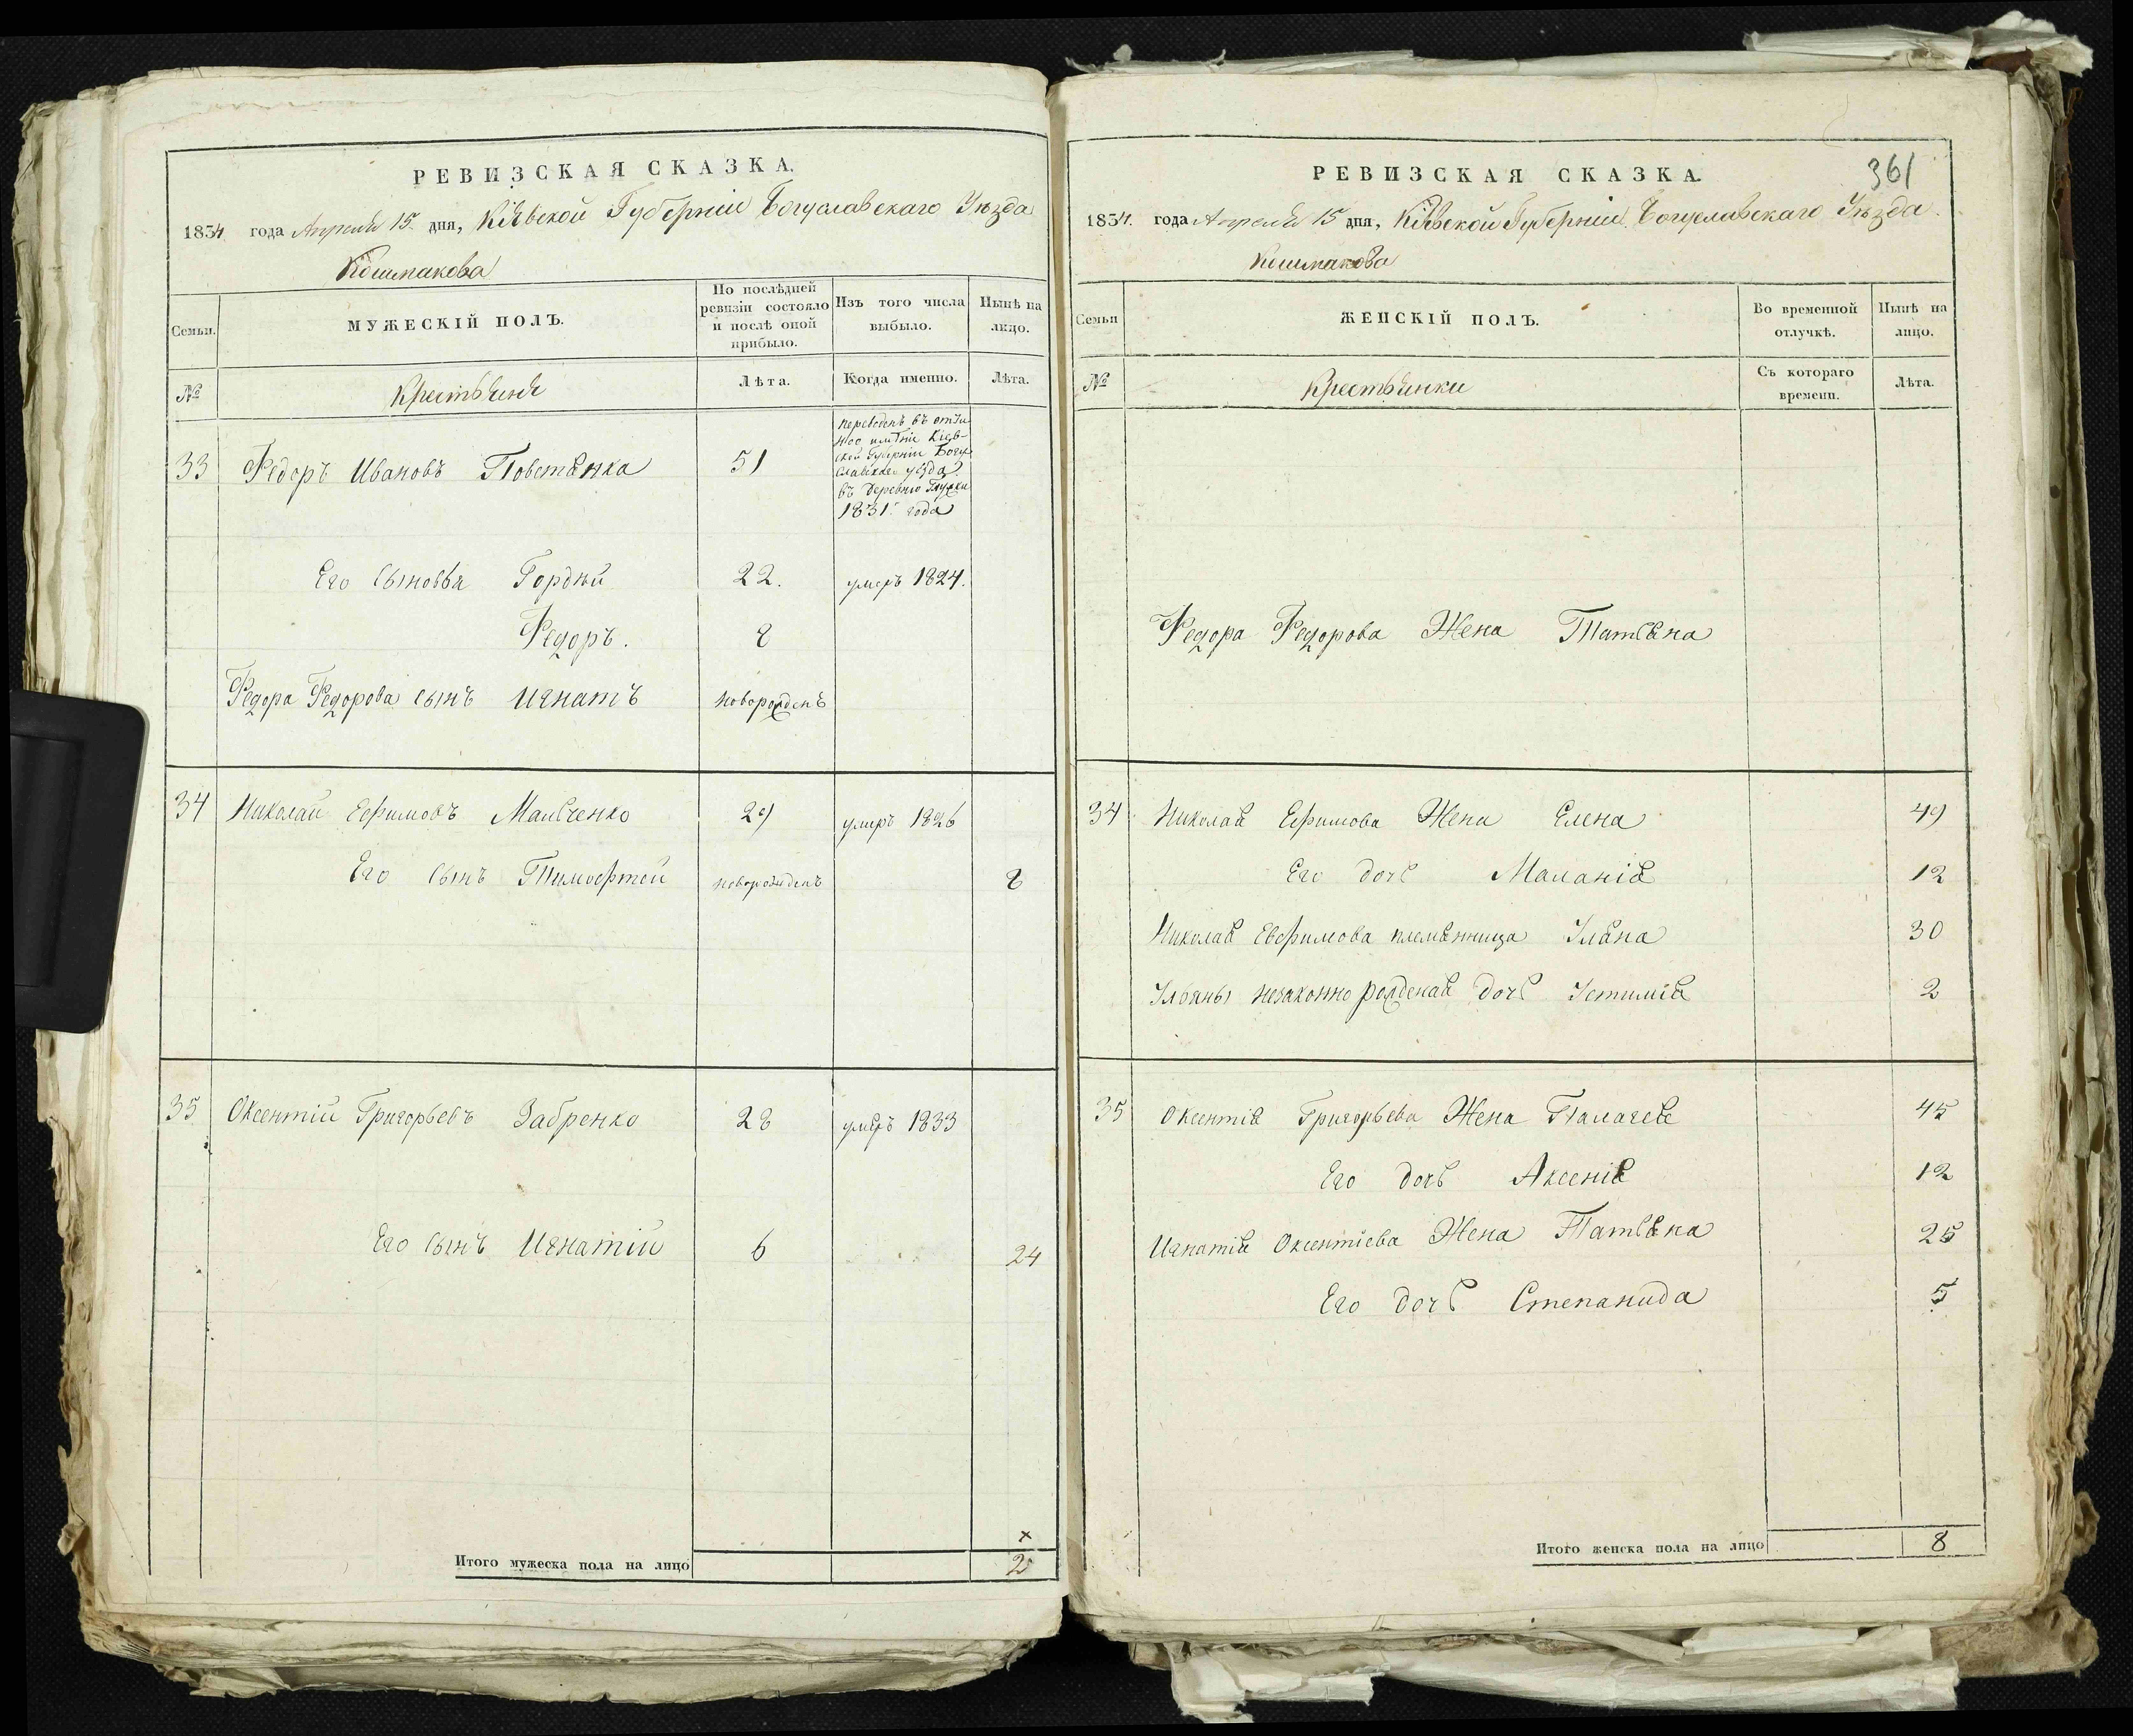 РЕВИЗСКАЯ СКАЗКА.
1834. года Апреля 15. дня, Кіевской Губерніи Богуславскаго Уѣзда
Кошмакова
Семьи.
МУЖЕСКІЙ ПОЛЪ.
По послѣдней ревизіи состояло и послѣ оной прибыло.
Изъ того числа выбыло.
Нынѣ на лицо.
№
Крестьяне
Лѣта.
Когда именно.
Лѣта.
33 Федоръ Ивановъ Повстянка 51
переведенъ въ
имѣніе Кіев-
ской Губерніи Богу
славскаго уѣзда
въ деревню
1831. года
Его сыновья Гордѣй 22. умеръ 1824.
Федоръ. 8
Федора Федорова сынъ Игнатъ новорожденъ
34 Николай Ефимовъ Мальченко 29 умеръ 1826
Его сынъ Тимофтей новорожденъ 8
35 Оксентій Григорьевъ Забренко 28 умеръ 1833
Его сынъ Игнатій 6 24
Итого мужеска пола на лицо 2
РЕВИЗСКАЯ СКАЗКА.
361
1834. года Апреля 15 дня, Кіевской Губерніи Богуславскаго Уѣзда.
Кошмакова
Семьи
ЖЕНСКІЙ ПОЛЪ.
Во временной отлучкѣ.
Нынѣ на лицо.
№
Крестьянки
Съ котораго времени.
Лѣта.
Федора Федорова Жена Татьяна
34 Николая Ефимова Жена Елена 49
Его дочь Маланія 12
Николая Евфимова племянница Уляна 30
Ульяны незаконно рожденая дочь Устимія 2
35 Оксентія Григорьева Жена Палагея 45
Его дочь Аксенія 12
Игнатія Оксентіева Жена Татьяна 25
Его дочь Степанида 5
Итого женска пола на лицо 8